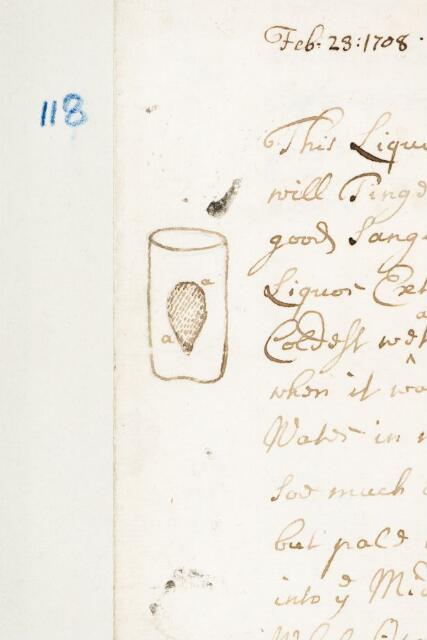 Feb. 23:1708.
118
This Liquo
will Tinge
good Sang
Liquor Ext
Coldest wet
when it wa
a
a
Water in
soe much
but pale
into ye